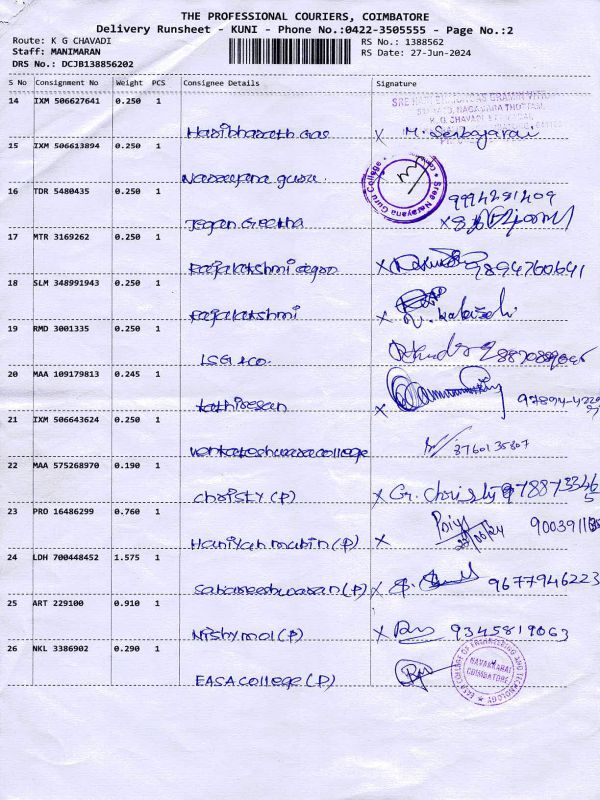 THE PROFESSIONAL COURIERS, COIMBATORE
Delivery Runsheet - KUNI - Phone No.:0422-3505555 - Page No.:2
Route: K G CHAVADI
RS No.: 1388562
Staff: MANIMARAN
RS Date: 27-Jun-2024
DRS No.: DCJB138856202
S No Consignment No Weight PCS Consignee Details Signature
14 IXM 506627641 0.250 1
Haribharath Gas
15 IXM 506613894 0.250 1
Narayana guru.
16 TDR 5480435 0.250 1
Jegan Geetha
17 MTR 3169262 0.250 1
Rajalakshmi
9894760641
18 SLM 348991943 0.250 1
Rajalakshmi
19 RMD 3001335 0.250 1
20 MAA 109179813 0.245 1
Kathiresan
21 IXM 506643624 0.250 1
Venkateshwara college
22 MAA 575268970 0.190 1
Christy (P) X
23 PRO 16486299 0.760 1
(P) X
24 LDH 700448452 1.575 1
Sabareeshwaran (P) X 9677946223
25 ART 229100 0.910 1
Nishymol (P) X 9345819063
26 NKL 3386902 0.290 1
EASA College (P)
EASA COLLEGE OF ENGINEERING AND TECHNOLOGY
NAVAKKARAI
COIMBATORE